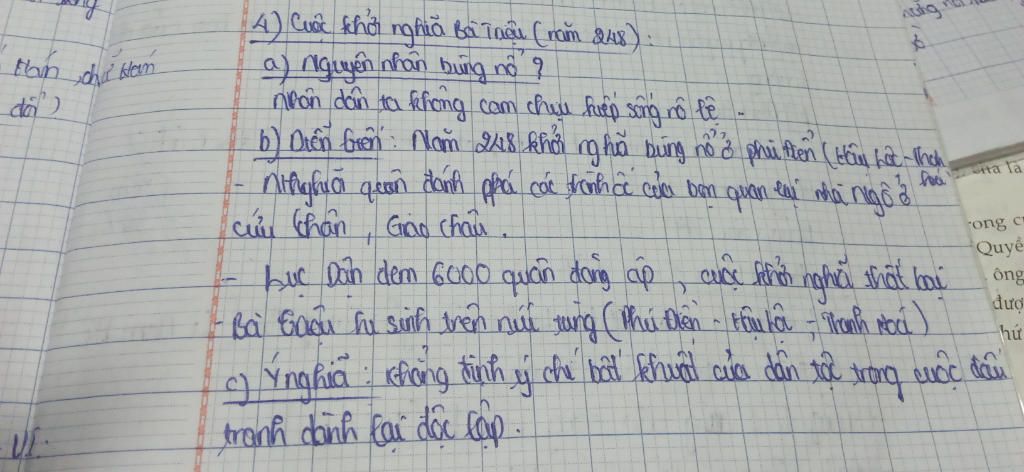 4) Cuộc khởi nghĩa Bà Triệu (năm 248).
a) Nguyên nhân bùng nổ ?
nhân dân ta không cam chịu kiếp sống nô lệ.
b) Diễn biến: Năm 248 khởi nghĩa bùng nổ ở phú điền (Hậu Lộc - Thanh Hoá)
- Nghĩa quân đánh phá các thành ấp của bọn quan lại nhà Ngô ở
cửu chân, Giao châu.
- Lục Dận đem 6000 quân đàn áp, cuộc khởi nghĩa thất bại
- Bà Triệu hi sinh trên núi tùng (Phú Điền - Hậu Lộc - Thanh Hoá)
c) Ý nghĩa: khẳng định ý chí bất khuất của dân tộc trong cuộc đấu
tranh dành lại độc lập.
VI.
ong c
Quyề
ông
đượ
hứ